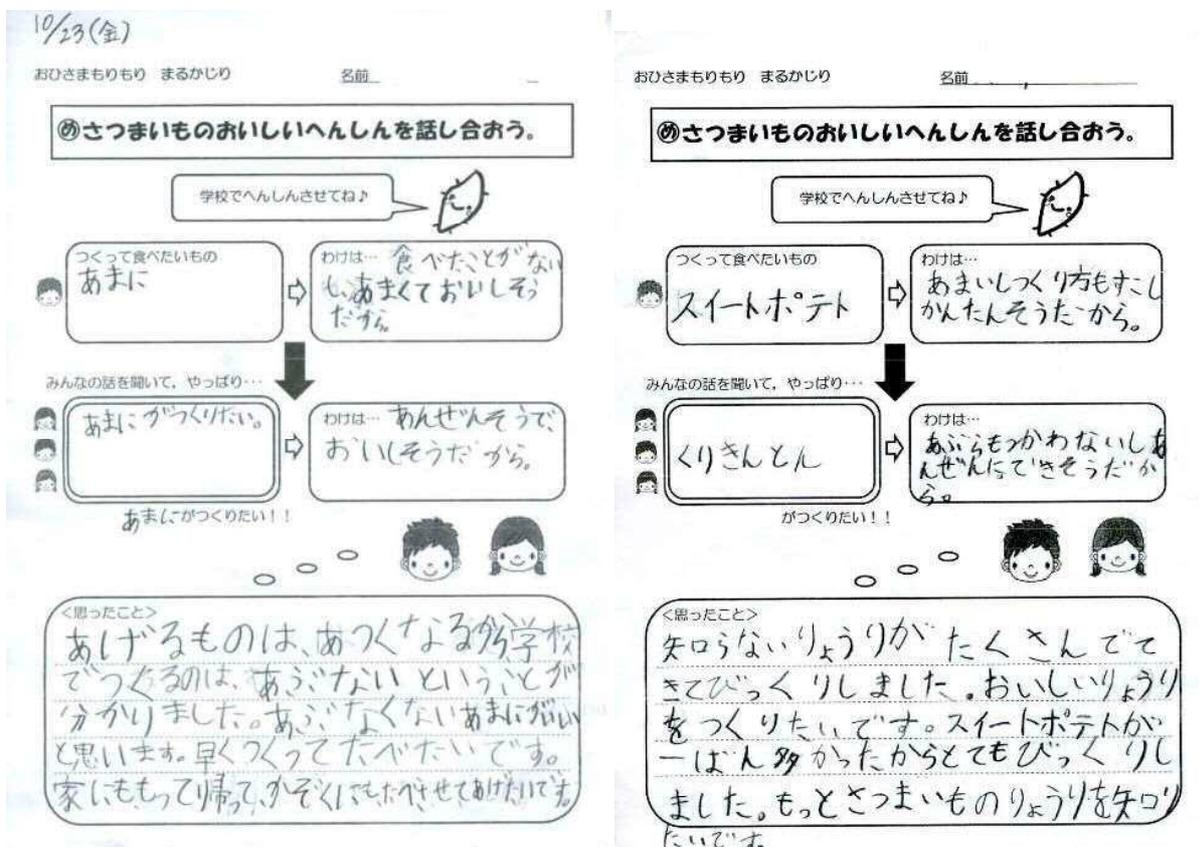 10/23(金)
おひさまもりもり まるかじり 名前
めさつまいものおいしいへんしんを話し合おう。
学校でへんしんさせてね♪
つくって食べたいもの
あまに
わけは… 食べたことがない
し、あまくておいしそう
だから。
みんなの話を聞いて，やっぱり…
あまにがつくりたい。
わけは… あんぜんそうで、
おいしそうだから。
あまにがつくりたい！！
＜思ったこと＞
あげるものは、あつくなるから、学校
でつくるのは、あぶないということが
分かりました。あぶなくないあまにがいい
と思います。早くつくってたべたいです。
家にももって帰って、かぞくにもたべさせてあげたいです。
おひさまもりもり まるかじり 名前
めさつまいものおいしいへんしんを話し合おう。
学校でへんしんさせてね♪
つくって食べたいもの
スイートポテト
わけは…
あまいしつくり方もすこし
かんたんそうだから。
みんなの話を聞いて，やっぱり…
くりきんとん
わけは…
あぶらもつかわないしあ
んぜんにできそうだか
ら。
がつくりたい！！
＜思ったこと＞
知らないりょうりがたくさんでて
きてびっくりしました。おいしいりょうり
をつくりたいです。スイートポテトが
一ばん多かったからとてもびっくりし
ました。もっとさつまいものりょうりを知り
たいです